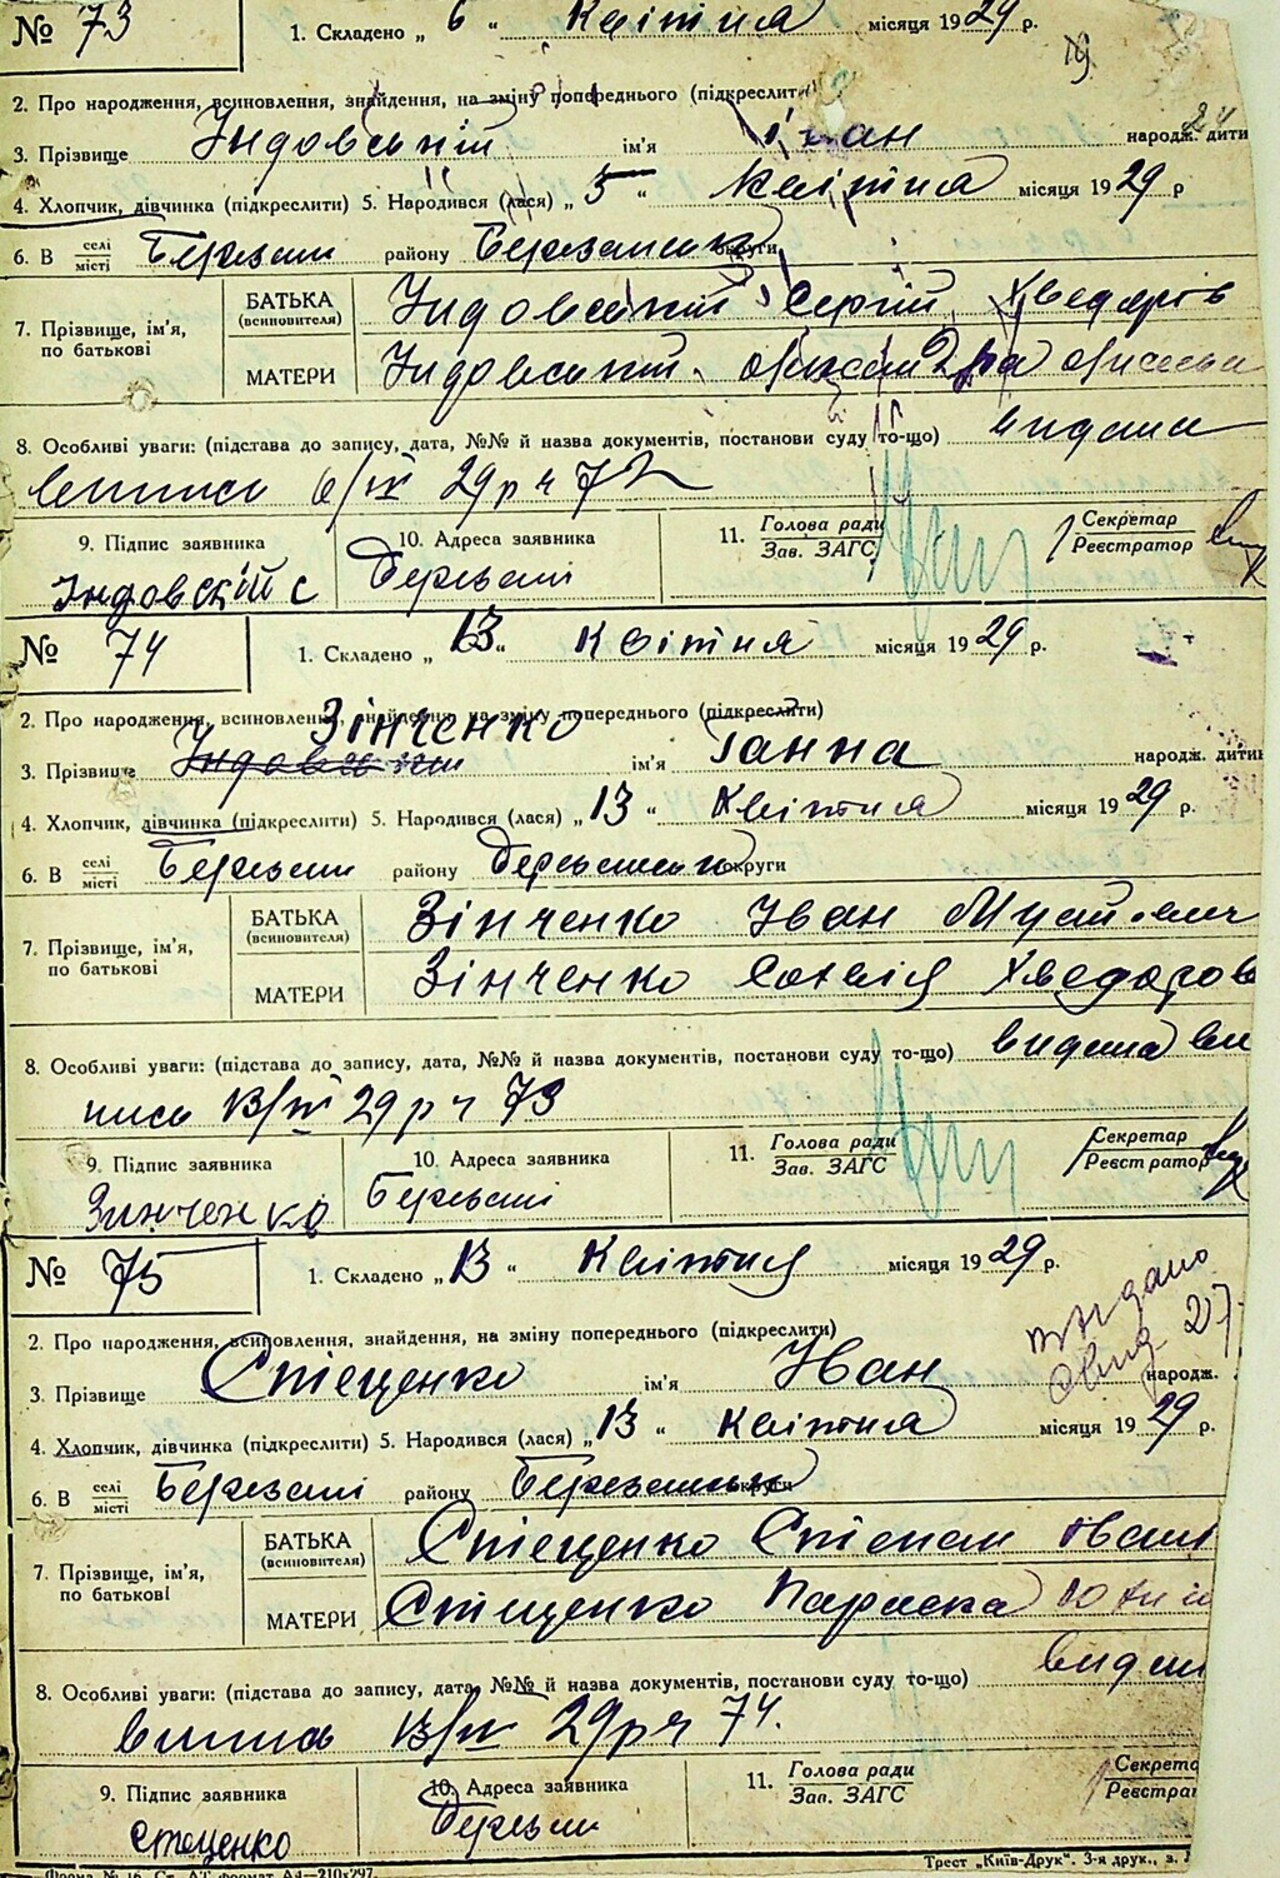 № 73 1. Складено „ 6 " Квітня місяця 1929 р.
19
2. Про народження, всиновлення, знайдення, на зміну попереднього (підкреслити)
24
3. Прізвище Індовській ім'я Іван народж. дити
4. Хлопчик, дівчинка (підкреслити) 5. Народився (лася) „ 5 " Квітня місяця 1929 р
6. В селі місті Березані району Березанськ округи
7. Прізвище, ім'я, по батькові
БАТЬКА (всиновителя) Індовський Сергій Хведорів
МАТЕРИ Індовський
8. Особливі уваги: (підстава до запису, дата, №№ й назва документів, постанови суду то-що) видана
випись 6/IV 29 р ч 72
9. Підпис заявника 10. Адреса заявника 11. Голова ради Зав. ЗАГС Секретар Реєстратор
Індовскій С Березані
№ 74 1. Складено „ 13 " Квітня місяця 1929 р.
2. Про народження, всиновлення, знайдення, на зміну попереднього (підкреслити)
Зінченко
3. Прізвище Індовський ім'я Ганна народж. дитин
4. Хлопчик, дівчинка (підкреслити) 5. Народився (лася) „ 13 " Квітня місяця 1929 р.
6. В селі місті Березані району Березанськ округи
7. Прізвище, ім'я, по батькові
БАТЬКА (всиновителя) Зінченко Іван
МАТЕРИ Зінченко Хведоров
8. Особливі уваги: (підстава до запису, дата, №№ й назва документів, постанови суду то-що) видана ви
пись 13/IV 29 р ч 73
9. Підпис заявника 10. Адреса заявника 11. Голова ради Зав. ЗАГС Секретар Реєстратор
Зинченко Березані
№ 75 1. Складено „ 13 " Квітня місяця 1929 р.
2. Про народження, всиновлення, знайдення, на зміну попереднього (підкреслити)
видано
27
3. Прізвище Стеценко ім'я Іван народж.
4. Хлопчик, дівчинка (підкреслити) 5. Народився (лася) „ 13 " Квітня місяця 1929 р.
6. В селі місті Березані району Березанськ округи
7. Прізвище, ім'я, по батькові
БАТЬКА (всиновителя) Стеценко Степан Іван
МАТЕРИ Стеценко Параска
8. Особливі уваги: (підстава до запису, дата, №№ й назва документів, постанови суду то-що) видан
випись 13/IV 29 р ч 74.
9. Підпис заявника 10. Адреса заявника 11. Голова ради Зав. ЗАГС Секрета Реєстрат
Стеценко Березані
Форма № 16. Ст. АТ формат А4—210х297. Трест „Київ-Друк". 3-я друк., з.